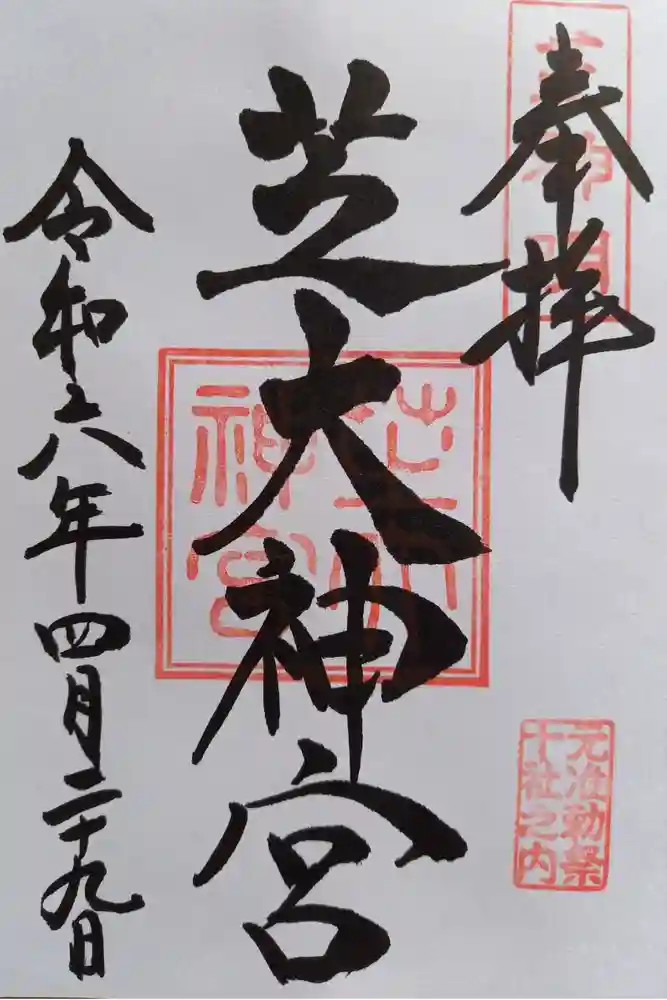 奉拝
芝神明
芝大神宮
芝大神宮
元准勅祭
十社之内
令和六年四月二十九日